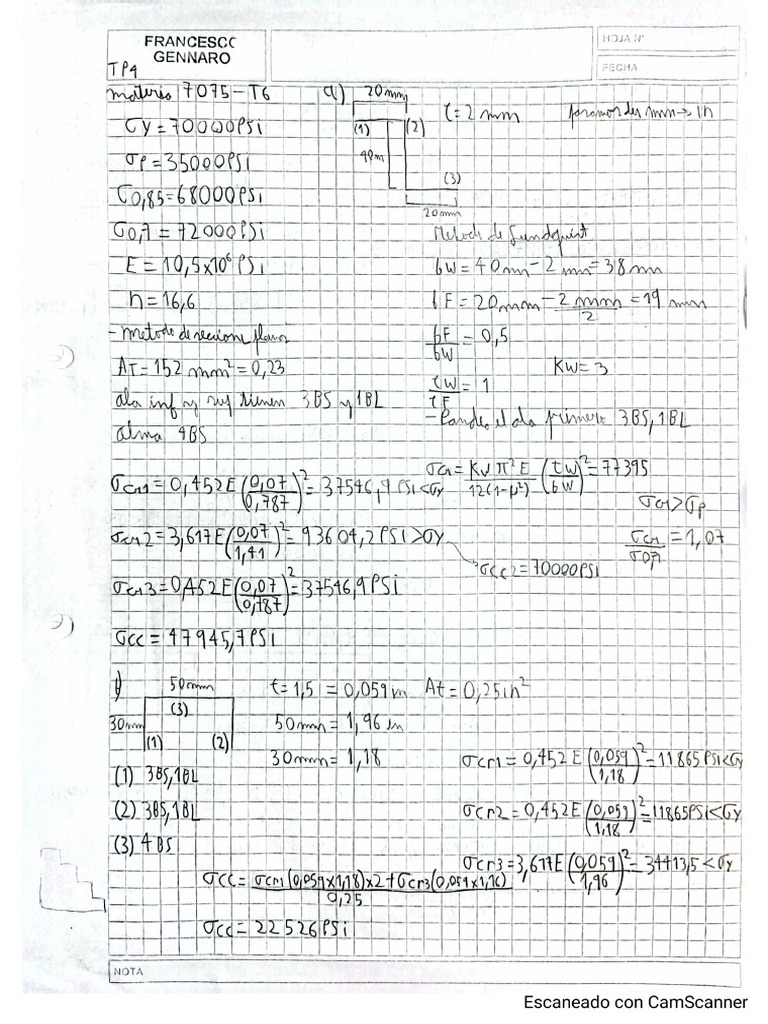 FRANCESCO
GENNARO
HOJA N°
FECHA
TP4
material 7075-T6
σy = 70000 PSi
σp = 35000 PSi
σ0,85 = 68000 PSi
σ0,7 = 72000 PSi
E = 10,5x10⁶ PSi
n = 16,6
- metodo de secciones planas
AT = 152 mm² = 0,23
ala inf y sup tienen 3BS y 1BL
alma 4BS
a) 20mm
t = 2 mm
pasamos des mm → in
(1) (2)
40m
(3)
20mm
Metodo de Gundquist
bw = 40 mm - 2 mm = 38 mm
bF = 20mm - 2 mm/2 = 19 mm
bF/bw = 0,5
Kw = 3
tw/tF = 1
- Pandea el ala primero 3BS, 1BL
σcr = Kw π² E/12(1-μ²) (tw/bw)² = 77395
σcr > σp
σcr/σ0,7 = 1,07
σcr1 = 0,452E (0,07/0,787)² = 37546,9 PSi < σy
σcr2 = 3,617E (0,07/1,41)² = 93604,2 PSi > σy
σcc2 = 70000 PSi
σcr3 = 0,452E (0,07/0,787)² = 37546,9 PSi
σcc = 47945,7 PSi
50mm
t = 1,5 = 0,059 in At = 0,25 in²
(3)
30mm
50mm = 1,96 in
(1) (2)
30mm = 1,18
σcr1 = 0,452E (0,059/1,18)² = 11865 PSi < σy
(1) 3BS, 1BL
(2) 3BS, 1BL
σcr2 = 0,452E (0,059/1,18)² = 11865 PSi < σy
(3) 4BS
σcr3 = 3,617E (0,059/1,96)² = 34413,5 < σy
σcc = σcr1 (0,059x1,18)x2 + σcr3 (0,059x1,96)/0,25
σcc = 22526 PSi
NOTA
Escaneado con CamScanner